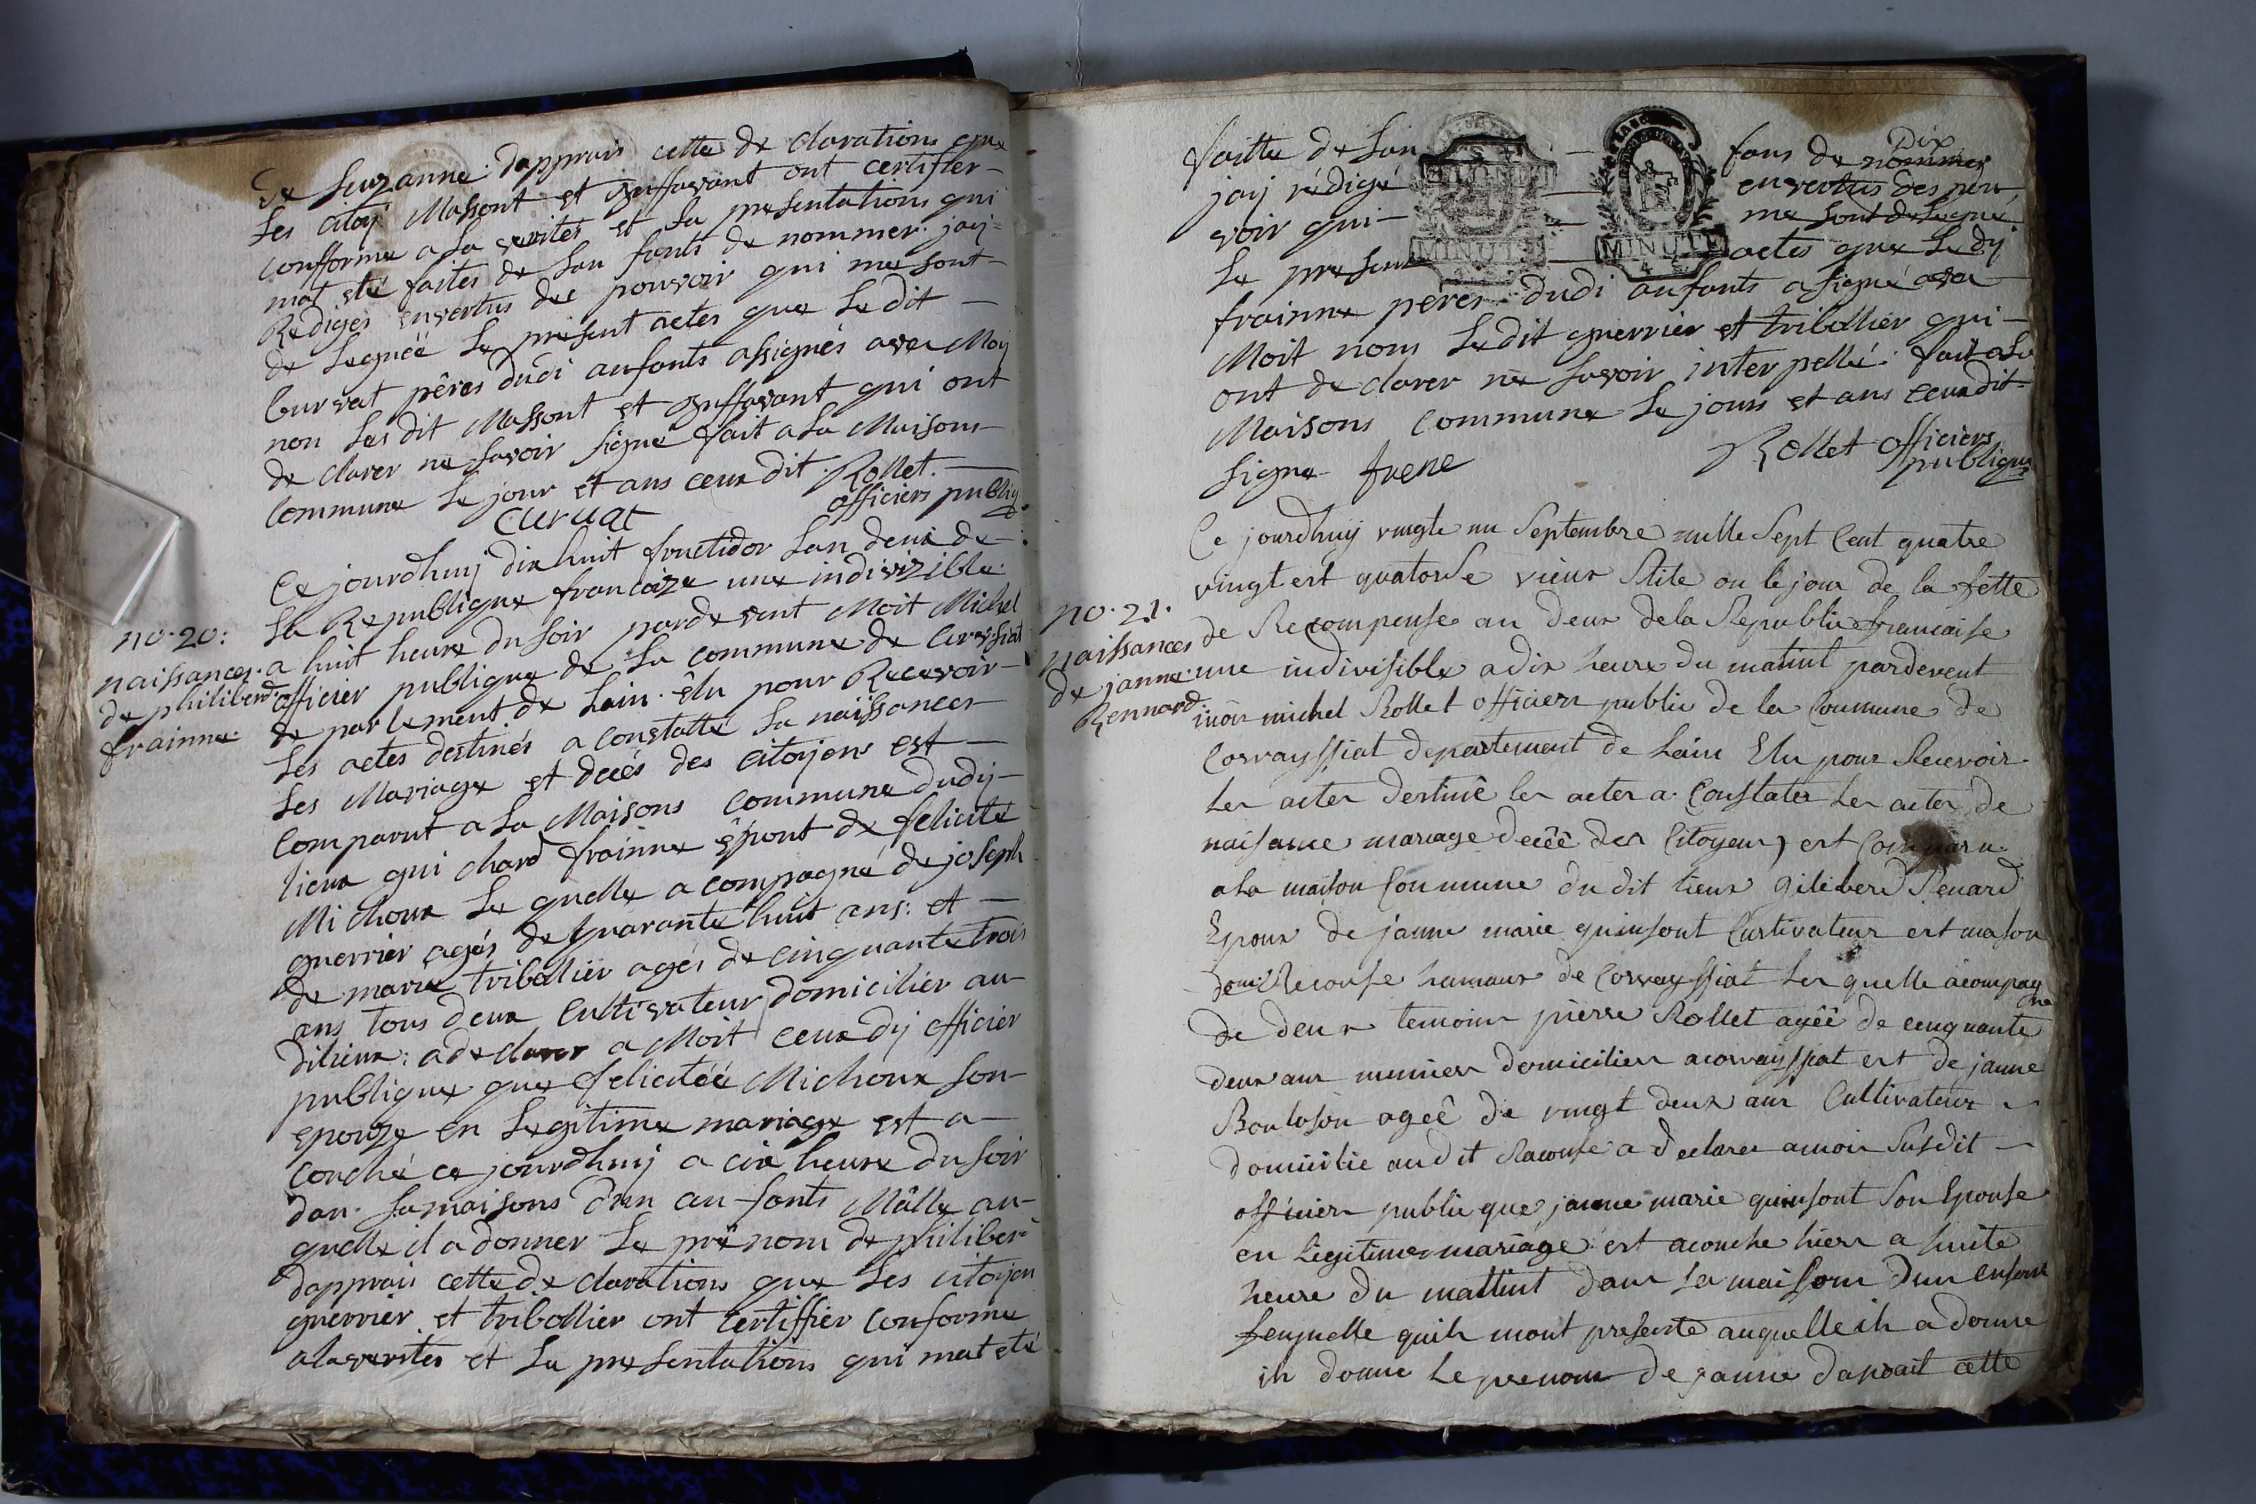 de Suzanne. dapprais cette de claration que
Les citoy Massont et Guffavant ont certifier
confforme a La verites et La presentations qui
mat été faites de Lan fants de nommer. jay
Rediges envertus des pouvoir qui me sont
de Legueé Le present actes que Le dit
Curvat pêres dudi anfants assignés avec Moy
non Les dit Massont et Guffavant qui ont
de clarer ne savoir signe fait a La Maisons
Commune Le jour et ans ceux dit. Rollet
officiers publiq
Curuat
no. 20:
naissances.
de philiberd
frainne.
Ce jourdhuy dix huit fructidor Lan deux de
La Republique francoize une indivizible
a huit heure du soir pardevant Moit Michel
officier publique de La commune de Corveyssiat
de partement de Lain. êlu pour Recevoir
Les actes destinés a constatté La naissances
Les Mariage et decés des citoyens est
comparut a La Maisons commune dudy
lieux qui chard frainne êpout de felicite
Michoux Le quelle a compagné de joseph
guerrier agés de quarante huit ans: et
de marie tribollier agés de cinquante trois
ans tous deux cultivateur domicilier au
dilieux: a declarer a Moit ceux dy officier
publique que felicitéé Michoux son
epouze en Legitime mariage est a
couché ce jourdhuy a cix heure du soir
dan. sa maisons d'un an fants Mâlle au
quelle il a donner Le prënom de philiber
dapprais cette de clarations que Les citoyen
guerrier et tribollier ont certiffier conforme
a la verites et La presentations qui mat eté
faitte de Lan fans de nommer
Dix
jay rédigé envertus des pou
voir qui me sont de Legué
Le present actes que Le dy
frainne peres dudi anfants a signé avec
Moit nom Ledit guerrier et tribollier qui
ont de clarer ne savoir interpellé. fait a La
Maisons commune Le jours et ans ceux dit
signe frene
Rollet officiers
publique
MINUTE
MINUTE
4
no. 21.
naissances
de janne
Rennard
Ce jourdhuy vingte un Septembre mille Sept Cent quatre
vingt est quatorse vieux Stile ou le jour de la fette
de Recompense an deux de la Republic francaise
une indivisible a dix heure du matint pardevent
moi michel Rollet officiers public de la Commune de
Corvayssiat departement de Lain Elu pour Recevoir
Les actes destiné les actes a Constates Les actes de
naisance mariage deceê des Citoyens est Comparu
a la maison Commune du dit Lieux giliberd Renard
Epoux de janne marie quinsont Cultivateur est mason
dom Racouse hamaux de Corvayssiat Les quelle acompagne
de deux temoins pierre Rollet ageê de cenquante
deux ans munier domicilier a corvayssiat est de janne
Bouloson ageê de vingt deux ans Cultivateur
domicilie audit Racouse a declarer a moi Susdit
officier public que janne marie quinsont Son Epouse
en Legitime mariage est acouche hier a huite
heure du mattint dans La maison dun enfant
femelle quil mont presente auquelle il a donne
il donne Le prenom de janne daprait cette